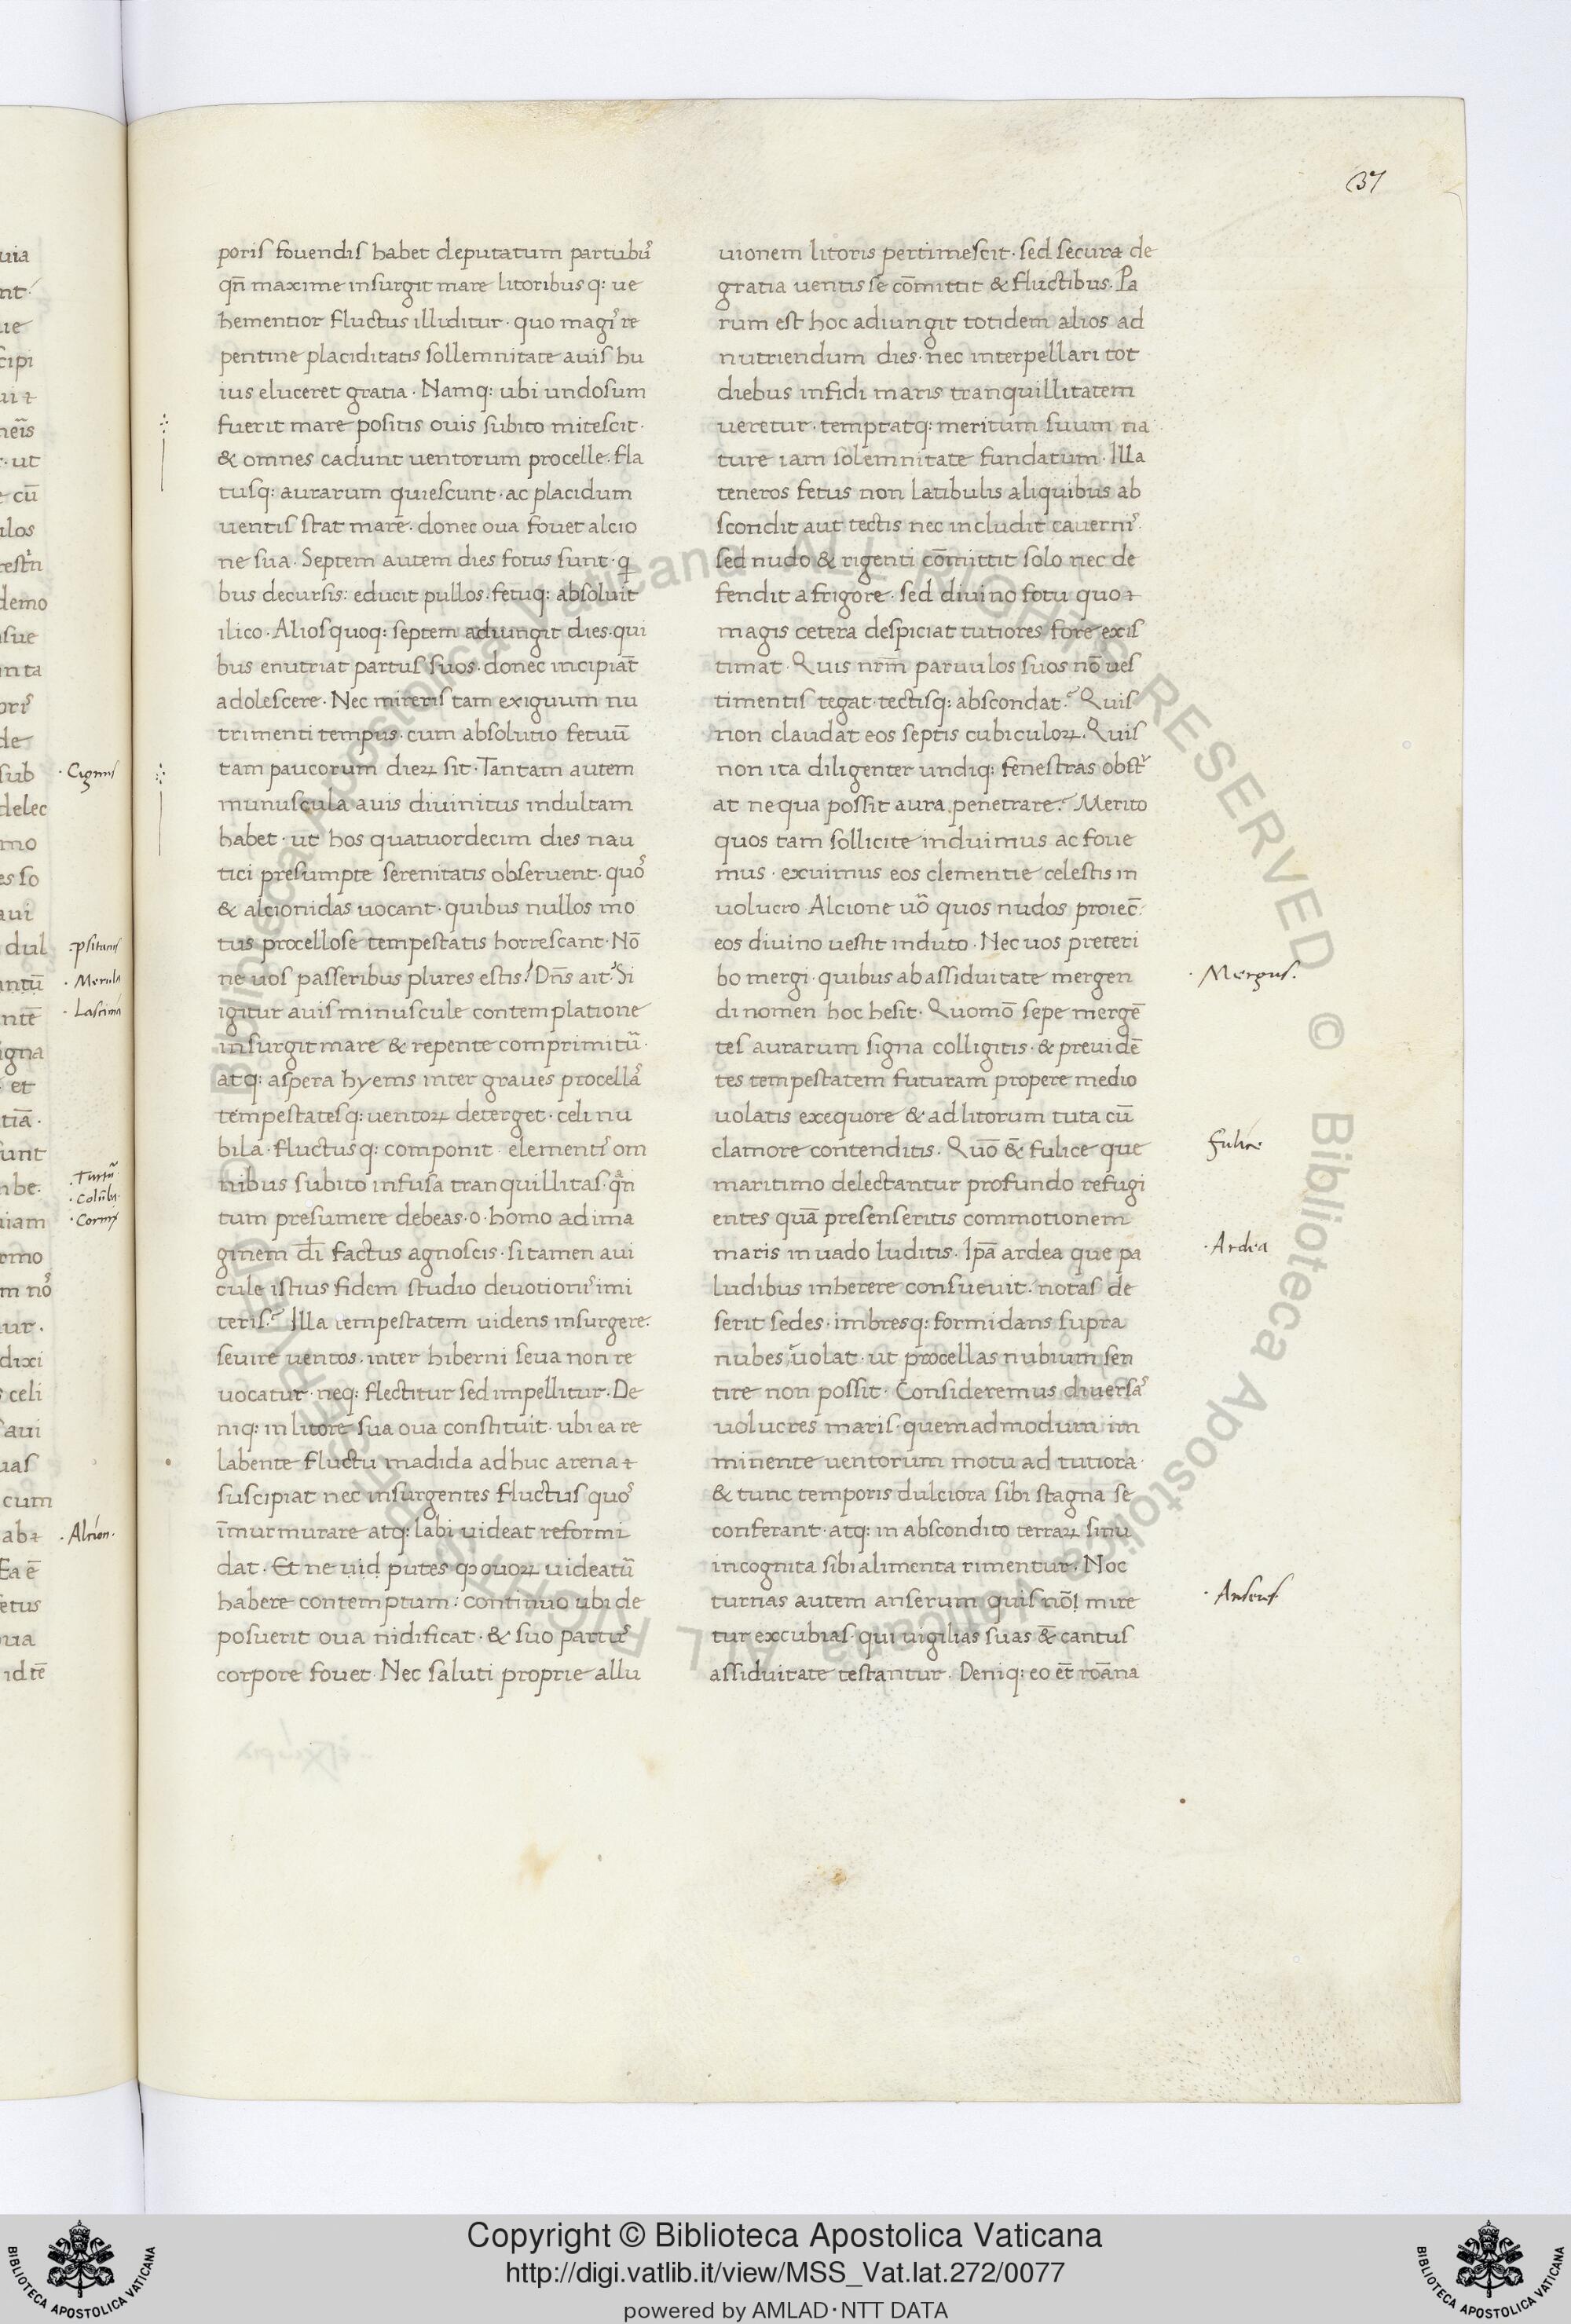 37
poris fouendis habet deputatum partubꝰ
qn̄ maxime insurgit mare litoribus q: ue
hementior fluctus illiditur · quo magiꝰ re
pentine placiditatis sollemnitate auis hu
ius eluceret gratia · Namq: ubi undosum
fuerit mare positis ouis subito mitescit ·
& omnes cadunt uentorum procelle · fla
tusq: aurarum quiescunt · ac placidum
uentis stat mare · donec oua fouet alcio
ne sua · Septem autem dies fotus sunt · qͥ
bus decursis: educit pullos · fetuq: absoluit
ilico · Alios quoq: septem adiungit dies · qui
bus enutriat partus suos · donec incipiāt
adolescere · Nec mireris tam exiguum nu
trimenti tempus · cum absolutio fetuū
tam paucorum dieꝝ sit · Tantam autem
munuscula auis diuinitus indultam
habet · ut hos quatuordecim dies nau
tici presumpte serenitatis obseruent · quoꝰ
& alcionidas uocant · quibus nullos mo
tus procellose tempestatis horrescant · Nō
ne uos passeribus plures estis? Dn̄s ait · Si
igitur auis minuscule contemplatione
insurgit mare & repente comprimitu᷑ ·
atq: aspera hyems inter graues procellaꝰ
tempestatesq: uentoꝝ deterget · celi nu
bila · fluctusq: componit · elementiꝰ om
nibus subito infusa tranquillitas · qͣn
tum presumere debeas · o · homo ad ima
ginem di̅ factus agnoscis · si tamen aui
cule istius fidem studio deuotioniꝰ imi
teris? Illa tempestatem uidens insurgere ·
seuire uentos · inter hiberni seua non re
uocatur · neq: flectitur sed impellitur · De
niq: in litore sua oua constituit · ubi ea re
labente fluctu madida adhuc arena ⁊
suscipiat nec insurgentes fluctus quoꝰ
īmurmurare atq: labi uideat reformi
dat · Et ne uid putes ꝙ ouoꝝ uideatu᷑
habere contemptum: continuo ubi de
posuerit oua nidificat · & suo partuꝰ
corpore fouet · Nec saluti proprie allu
uionem litoris pertimescit · sed secura de
gratia uentis se cōmittit & fluctibus · Pa
rum est hoc adiungit totidem alios ad
nutriendum dies · nec interpellari tot
diebus infidi maris tranquillitatem
ueretur · temptatq: meritum suum na
ture iam solemnitate fundatum · Illa
teneros fetus non latibulis aliquibus ab
scondit aut tectis nec includit cauerniꝰ ·
sed nudo & rigenti cōmittit solo nec de
fendit a frigore · sed diuino fotu quo ⁊
magis cetera despiciat tutiores fore exis
timat · Quis nr̄m paruulos suos nō ues
timentis tegat · tectisq: abscondat? Quis
non claudat eos septis cubiculoꝝ · Quis
non ita diligenter undiq: fenestras obst᷑
at ne qua possit aura penetrare? Merito
quos tam sollicite induimus ac foue
mus · exuimus eos clementie celestis in
uolucro · Alcione uo᷑ quos nudos proiec̄:
eos diuino uestit induto · Nec uos preteri
bo mergi · quibus ab assiduitate mergen
di nomen hoc hesit · Quomō sepe mergē
tes aurarum signa colligitis · & preuidē
tes tempestatem futuram propere medio
uolatis ex equore & ad litorum tuta cū
clamore contenditis · Quō &̄ fulice que
maritimo delectantur profundo refugi
entes quā presenseritis commotionem
maris in uado luditis · Ip̄a ardea que pa
ludibus inherere consueuit · notas de
serit sedes · imbresq: formidans supra
nubes uolat · ut procellas nubium sen
tire non possit · Consideremus diuersaꝰ
uolucres maris · quemadmodum im
minente uentorum motu ad tutiora ·
& tunc temporis dulciora sibi stagna se
conferant · atq: in abscondito terraꝝ sinu
incognita sibi alimenta rimentur · Noc
turnas autem anserum quis nō! mire
tur excubias · qui uigilias suas &̄ cantus
assiduitate testantur · Deniq: eo et̄ roāna
· Mergus ·
fulice
· Ardea
· Anseres
· Cignus
· psitacus
· Merula
· Cornix
· Alcion ·
Copyright © Biblioteca Apostolica Vaticana
http://digi.vatlib.it/view/MSS_Vat.lat.272/0077
powered by AMLAD · NTT DATA
BIBLIOTECA APOSTOLICA VATICANA
BIBLIOTECA APOSTOLICA VATICANA